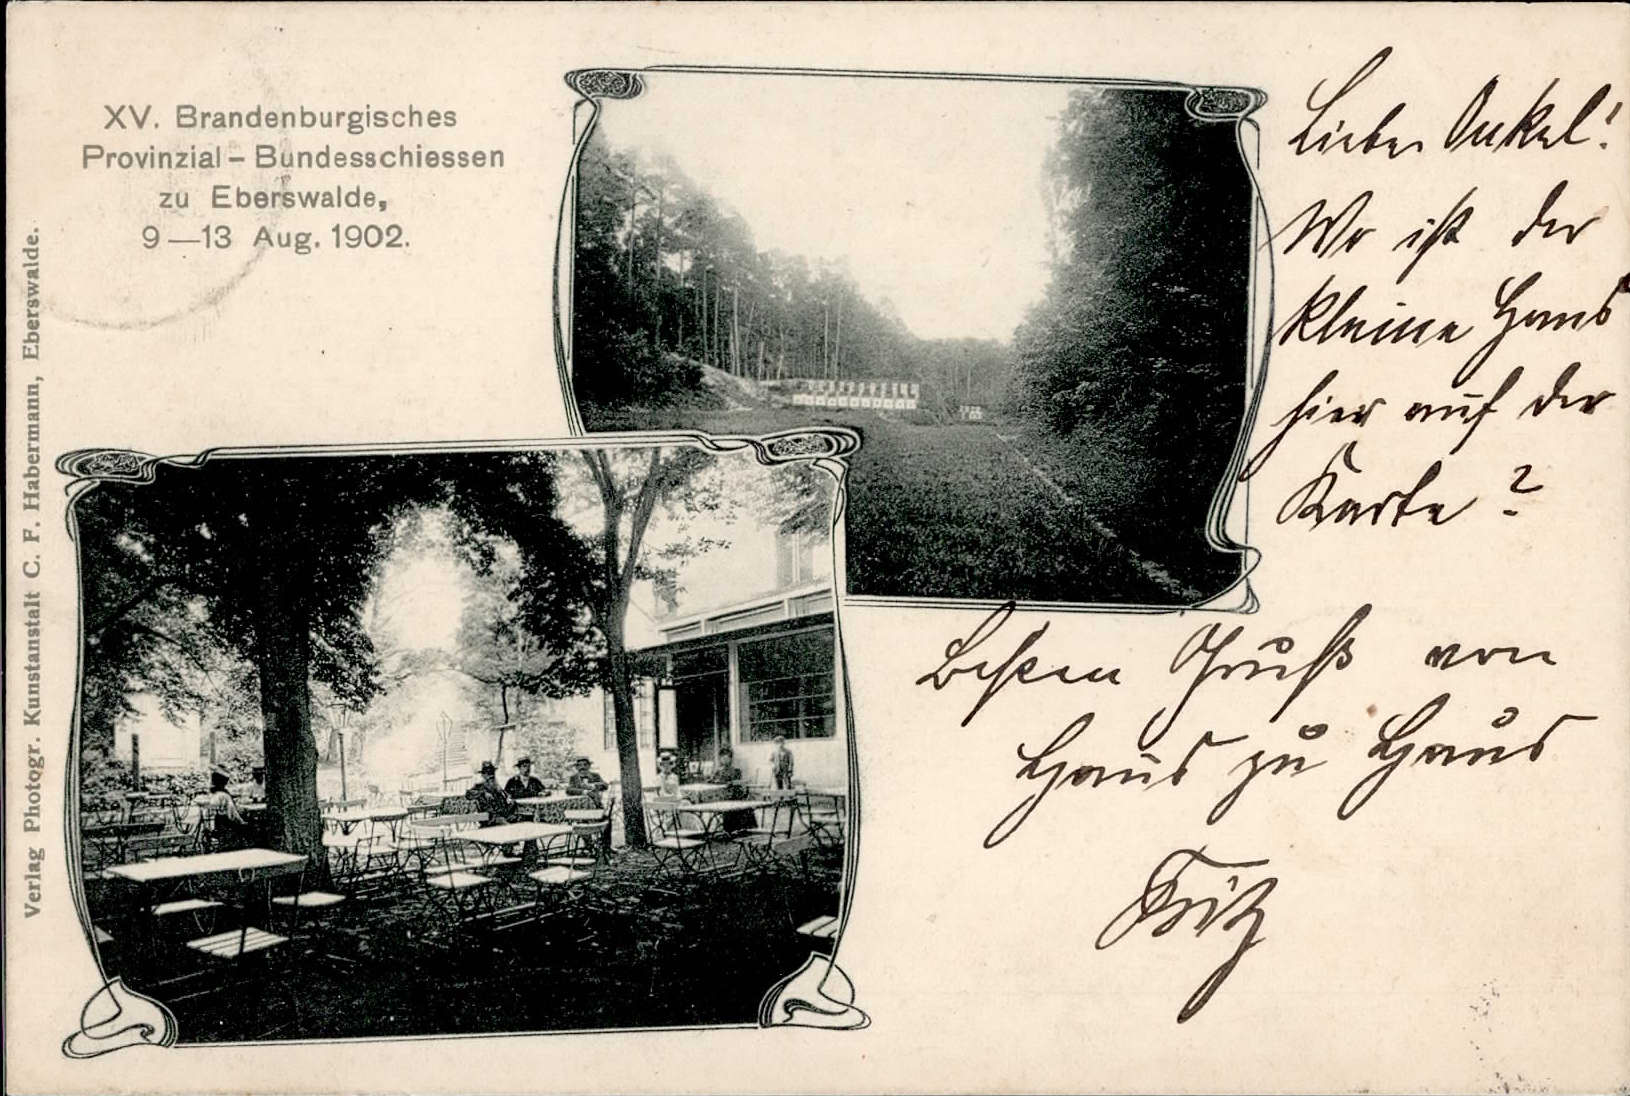 XV. Brandenburgisches
Provinzial-Bundesschiessen
zu Eberswalde,
9—13 Aug. 1902.
Verlag Photogr. Kunstanstalt C. F. Habermann, Eberswalde.
Lieber Onkel!
Wo ist der
kleine Hans
hier auf der
Karte?
Besten Gruß von
Haus zu Haus
Fritz